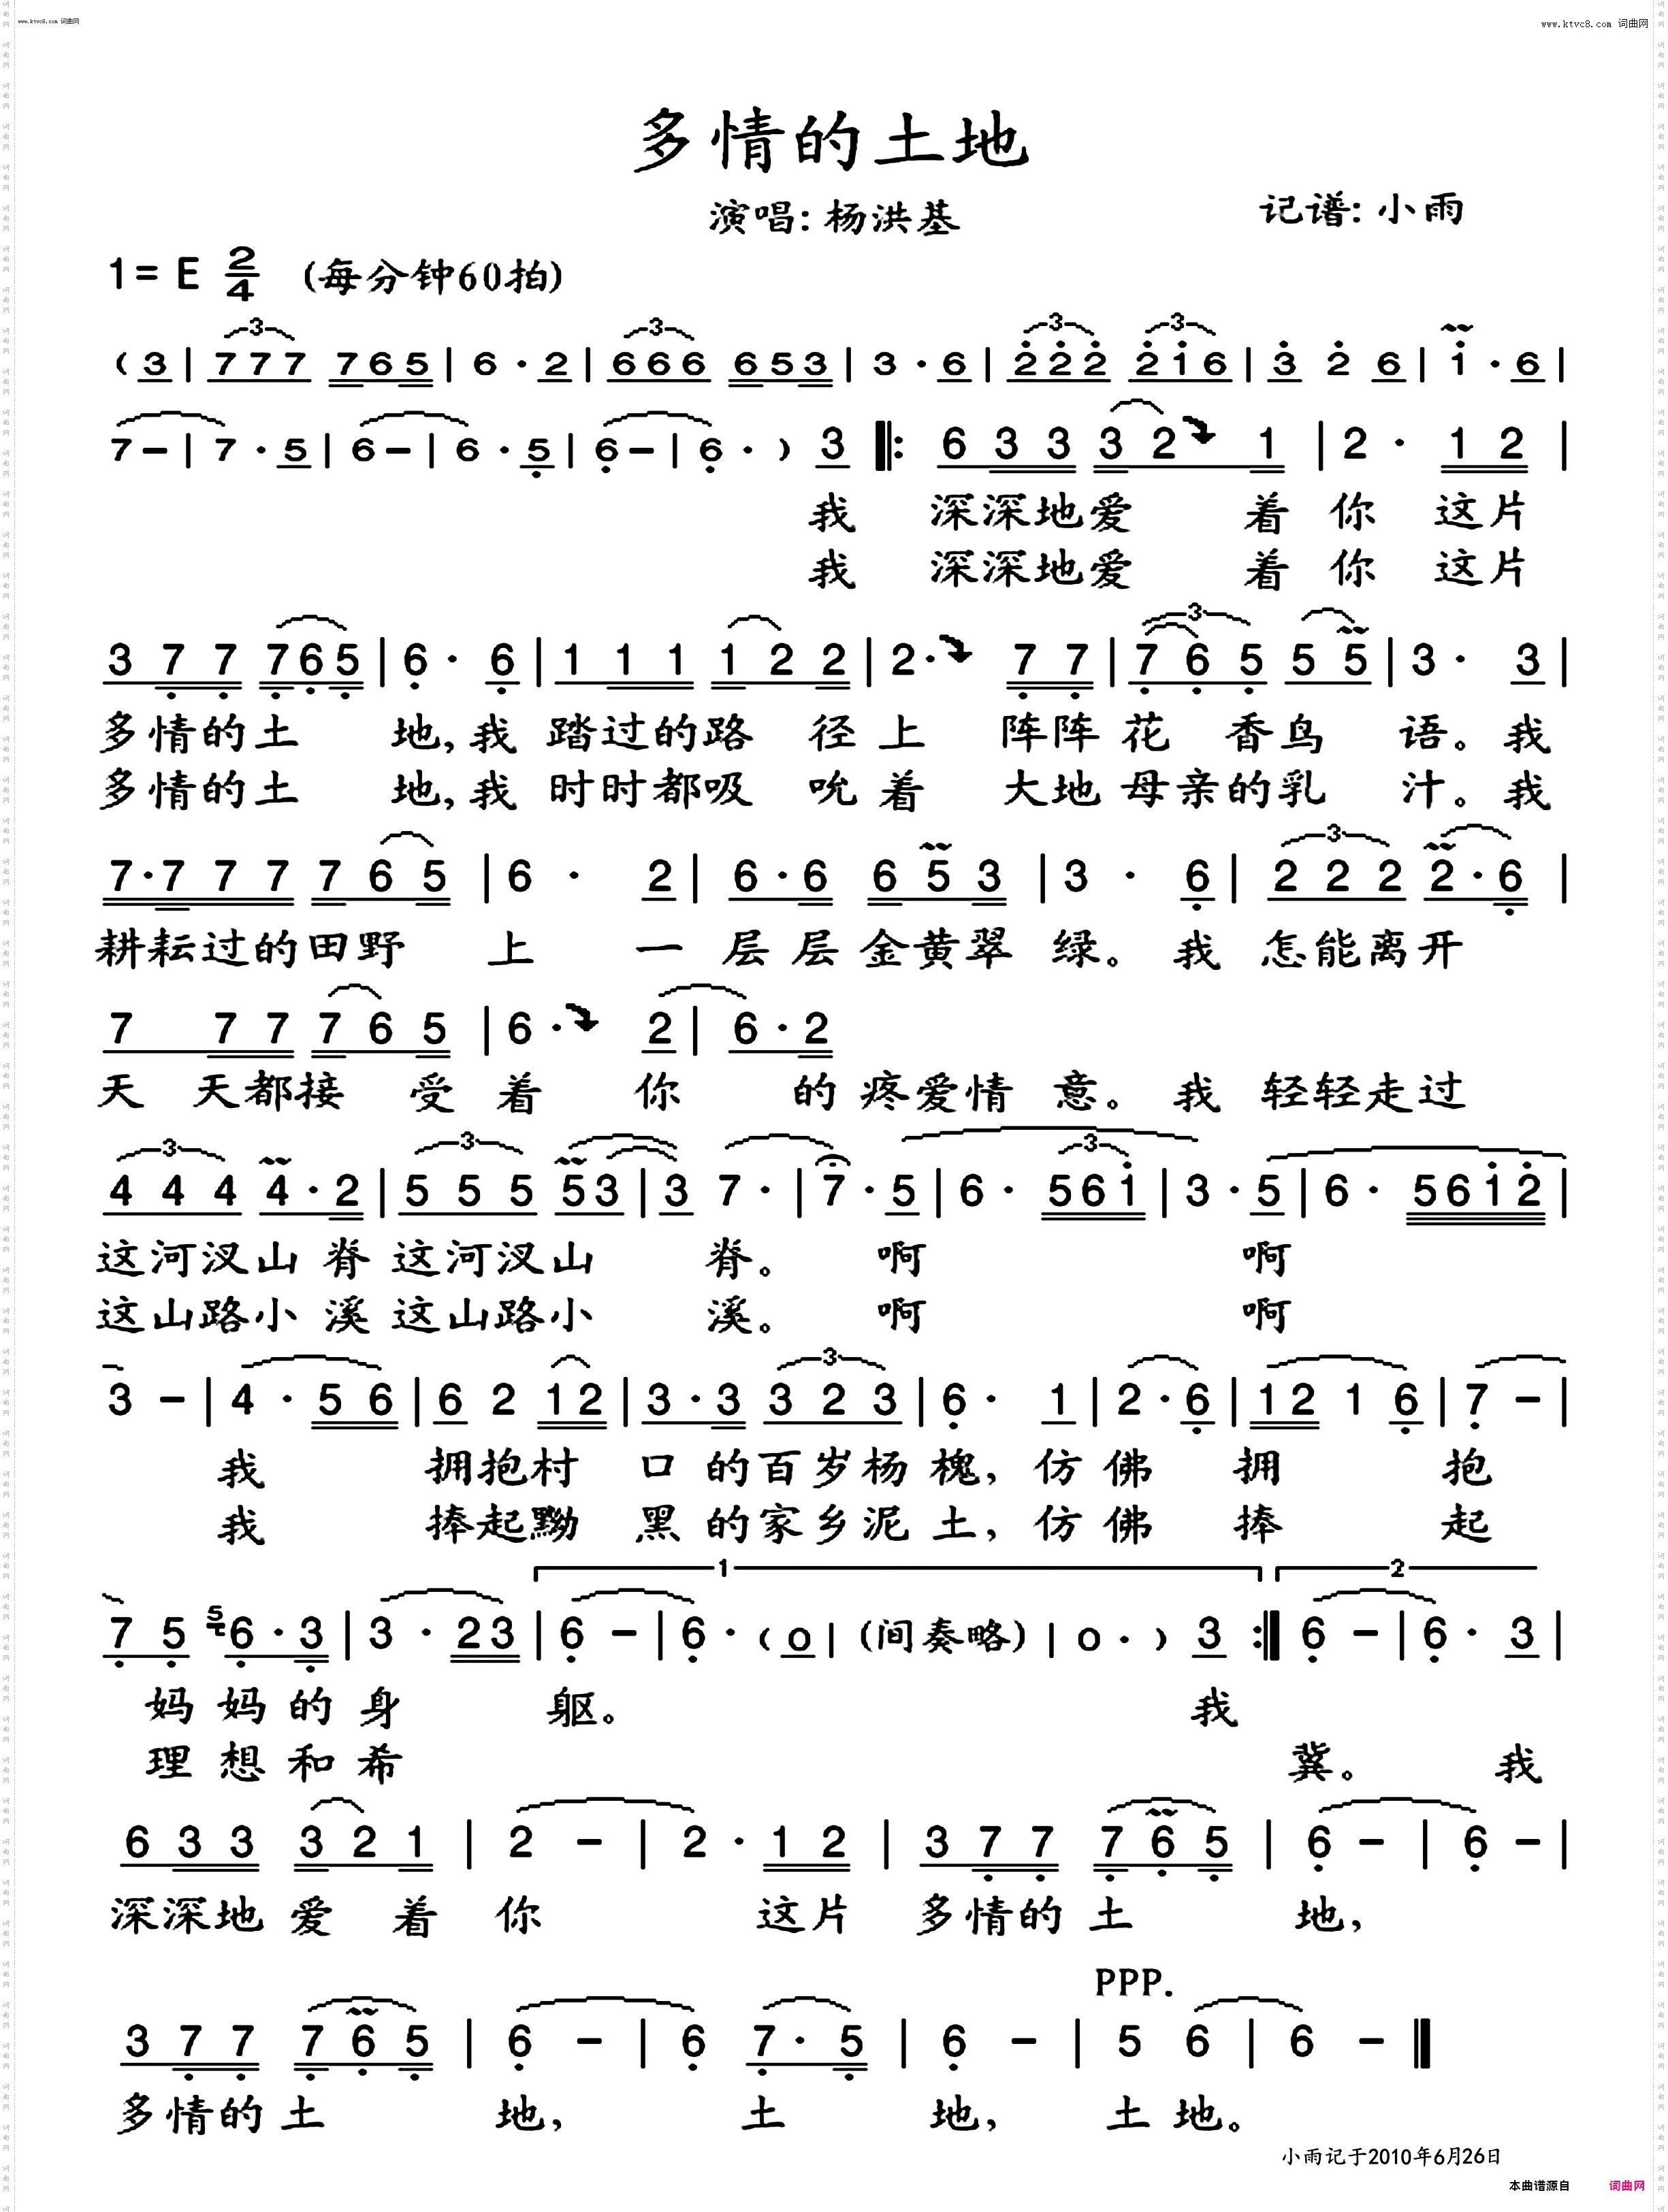 www.ktvc8.com 词曲网
www.ktvc8.com 词曲网
多情的土地
演唱:杨洪基
记谱:小雨
1=E 2/4 (每分钟60拍)
(3 | 777 765 | 6·2 | 666 653 | 3·6 | 222 216 | 3 2 6 | 1·6 |
7– | 7·5 | 6– | 6·5 | 6– | 6·) 3 ‖: 6 3 3 3 2 1 | 2· 1 2 |
我 深深地爱 着 你 这片
我 深深地爱 着 你 这片
3 7 7 7 6 5 | 6· 6 | 1 1 1 1 2 2 | 2· 7 7 | 7 6 5 5 5 | 3· 3 |
多情的土 地,我 踏过的路 径上 阵阵花 香鸟 语。我
多情的土 地,我 时时都吸 吮着 大地母亲的乳 汁。我
7·7 7 7 7 6 5 | 6· 2 | 6·6 6 5 3 | 3· 6 | 2 2 2 2·6 |
耕耘过的田野 上 一层层金黄翠 绿。我 怎能离开
7 7 7 7 6 5 | 6· 2 | 6·2
天 天都接 受着 你 的疼爱情 意。我 轻轻走过
4 4 4 4·2 | 5 5 5 53 | 3 7· | 7·5 | 6· 561 | 3·5 | 6· 5612 |
这河汊山 脊这河汊山 脊。 啊 啊
这山路小 溪这山路小 溪。 啊 啊
3 – | 4· 5 6 | 6 2 12 | 3·3 3 2 3 | 6· 1 | 2·6 | 12 1 6 | 7 – |
我 拥抱村 口 的百岁杨 槐,仿 佛 拥 抱
我 捧起黝 黑 的家乡泥 土,仿 佛 捧 起
1 2
7 5 5 6·3 | 3· 23 | 6 – | 6· (0 | (间奏略) | 0·) 3 :‖ 6 – | 6· 3 |
妈妈的身 躯。 我
理想和希 冀。 我
6 3 3 3 2 1 | 2 – | 2· 1 2 | 3 7 7 7 6 5 | 6 – | 6 – |
深深地爱 着 你 这片 多情的土 地,
PPP.
3 7 7 7 6 5 | 6 – | 6 7·5 | 6 – | 5 6 | 6 – ‖
多情的土 地, 土 地, 土地。
小雨记于2010年6月26日
本曲谱源自 词曲网